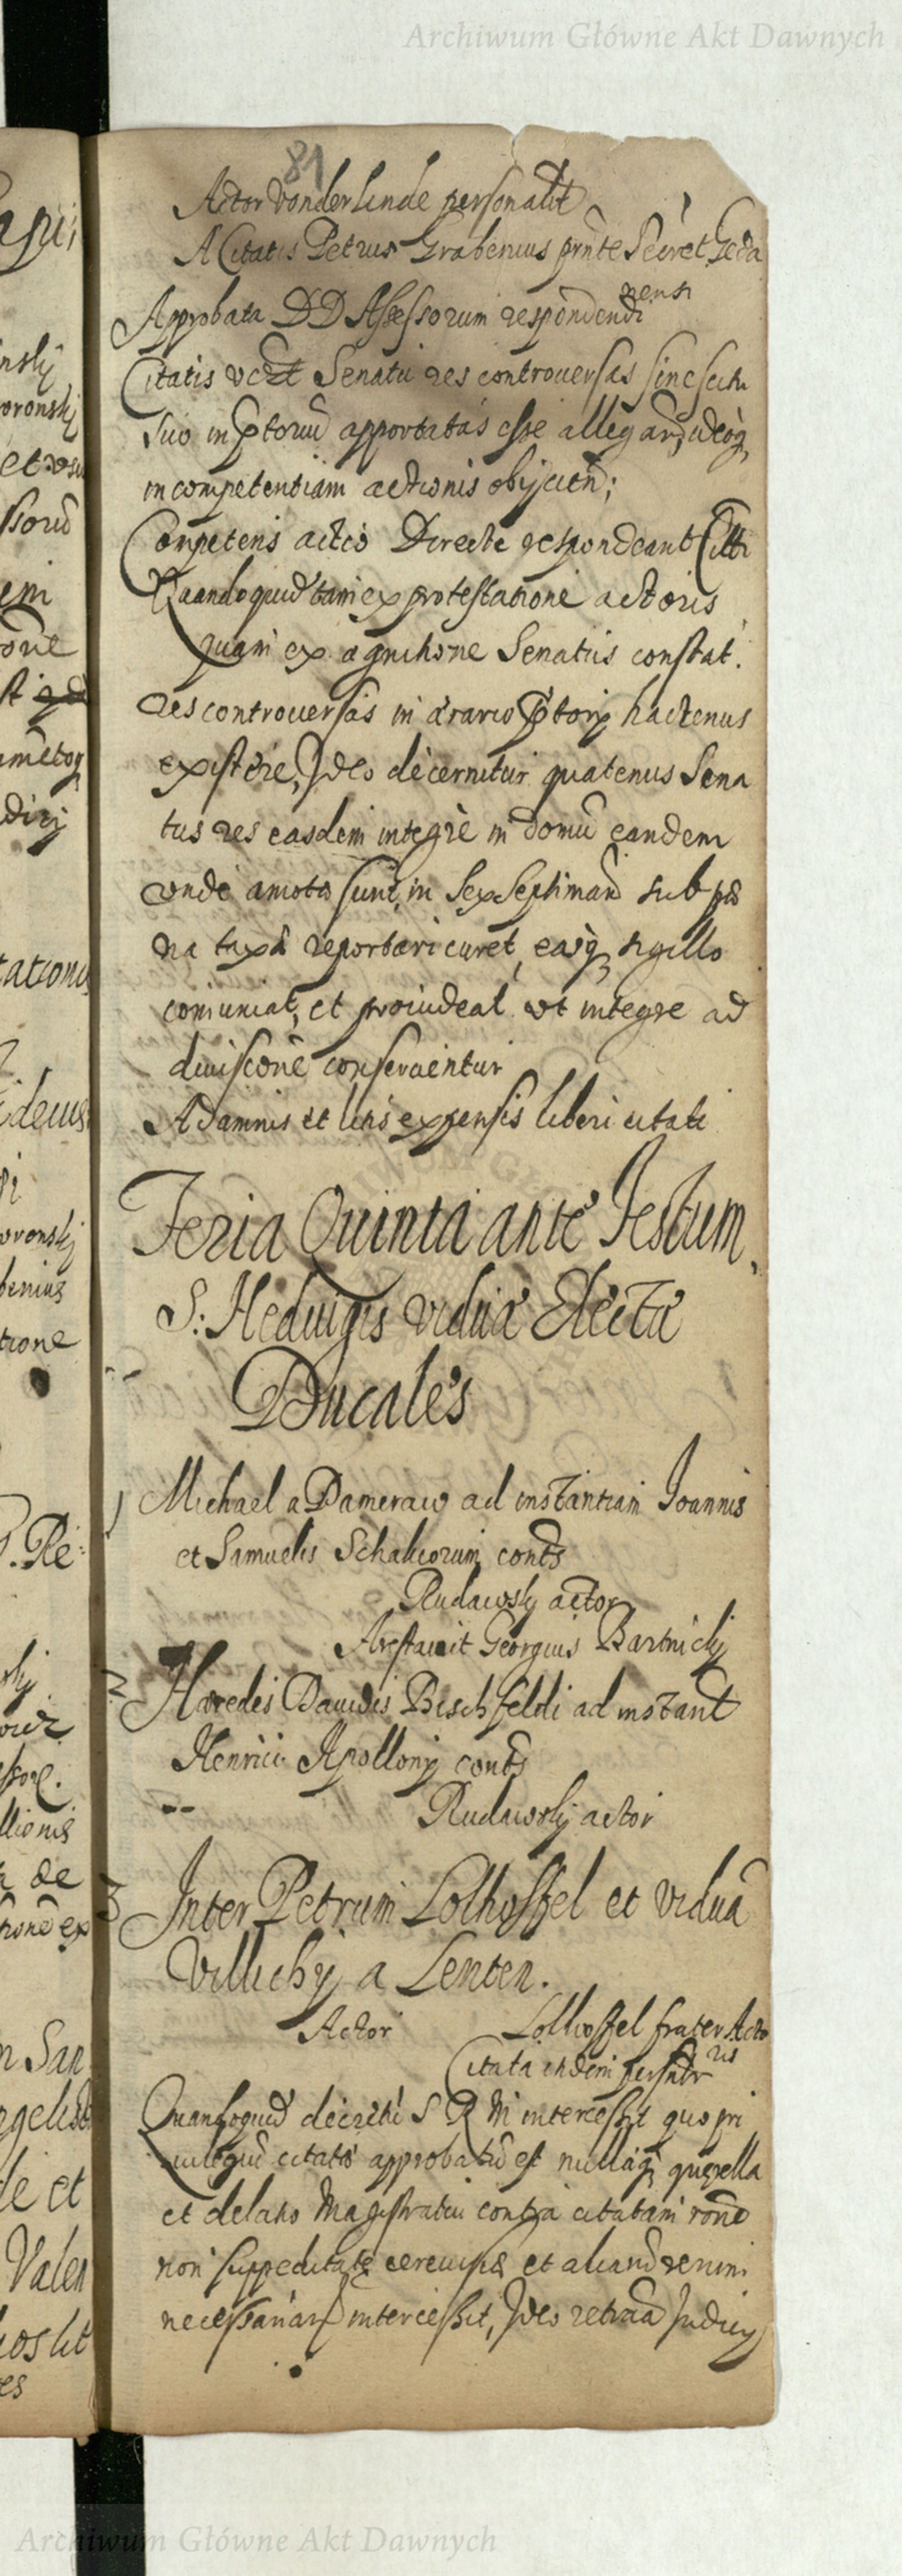 Archiwum Główne Akt Dawnych
81
Actor Vonderlinde personalit
A Citatis Petrus Grabenius prnte Secret Geda
nensi
Approbata DD Assessorum respondendi
Citatis vert Senatu res controuersas sine scitu
suo in apportatas esse allegand, ideoq
incompetentiam actionis obijcien;
Competens actio Directe respondeant Citti
Quandoquid tam ex protestatione actoris
quam ex agnitione Senatus constat.
res controuersas in ærario hactenus
existere, Ideo decernitur quatenus Sena
tus res easdem integre in domū eandem
vnde amotæ sunt, in sex septimand sub pæ
na taxæ reportari curet, easq sigillo
comuniat, et prouideat vt integre ad
diuisionē conseruentur
A damnis et litis expensis liberi citati
Feria Quinta ante Festum
S: Heduigis viduæ Electæ
Ducales
1 Michael a Dameraw ad instantiam Joannis
et Samuelis Schalicorum conts
Rudawsky actor
Arestauit Georgius Bartnicky
2 Hæredes Dauidis Bischfeldi ad instant
Henrici Apollonij conts
Rudawsky actor
3 Inter Petrum Lolhoffel et viduā
Villichij a Lenten.
Actor Lolhoffel frater Acto
ris
Citata
Quandoquid decretū S R M intercessit quo pri
uilegiū citatæ approbatū est nullaq querella
et delatio Magistratu contra citatam rone
non suppeditatæ cereuisiæ et aliand rerum
necessariar intercessit, Ideo Judicij
Archiwum Główne Akt Dawnych